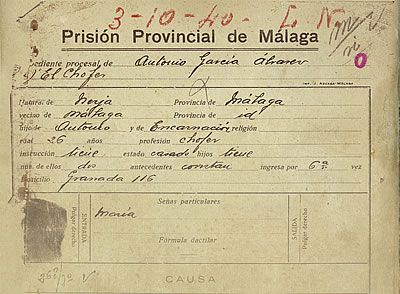 3-10-40- L N
Prisión Provincial de Málaga
ediente procesal de Antonio García Álvarez
"El Chofer
IMP. J. Ayensa-Málaga
0
natural de Nerja Provincia de Málaga
vecino de Málaga Provincia de id
hijo de Antonio y de Encarnación religión
edad 26 años profesión chofer
instrucción tiene estado casado hijos tiene
núm. de ellos dos antecedentes constan ingresa por 6ª vez
Domicilio Granada 116
Señas particulares
María
Fórmula dactilar
Pulgar derecho
ENTRADA
SALIDA
Pulgar derecho
CAUSA